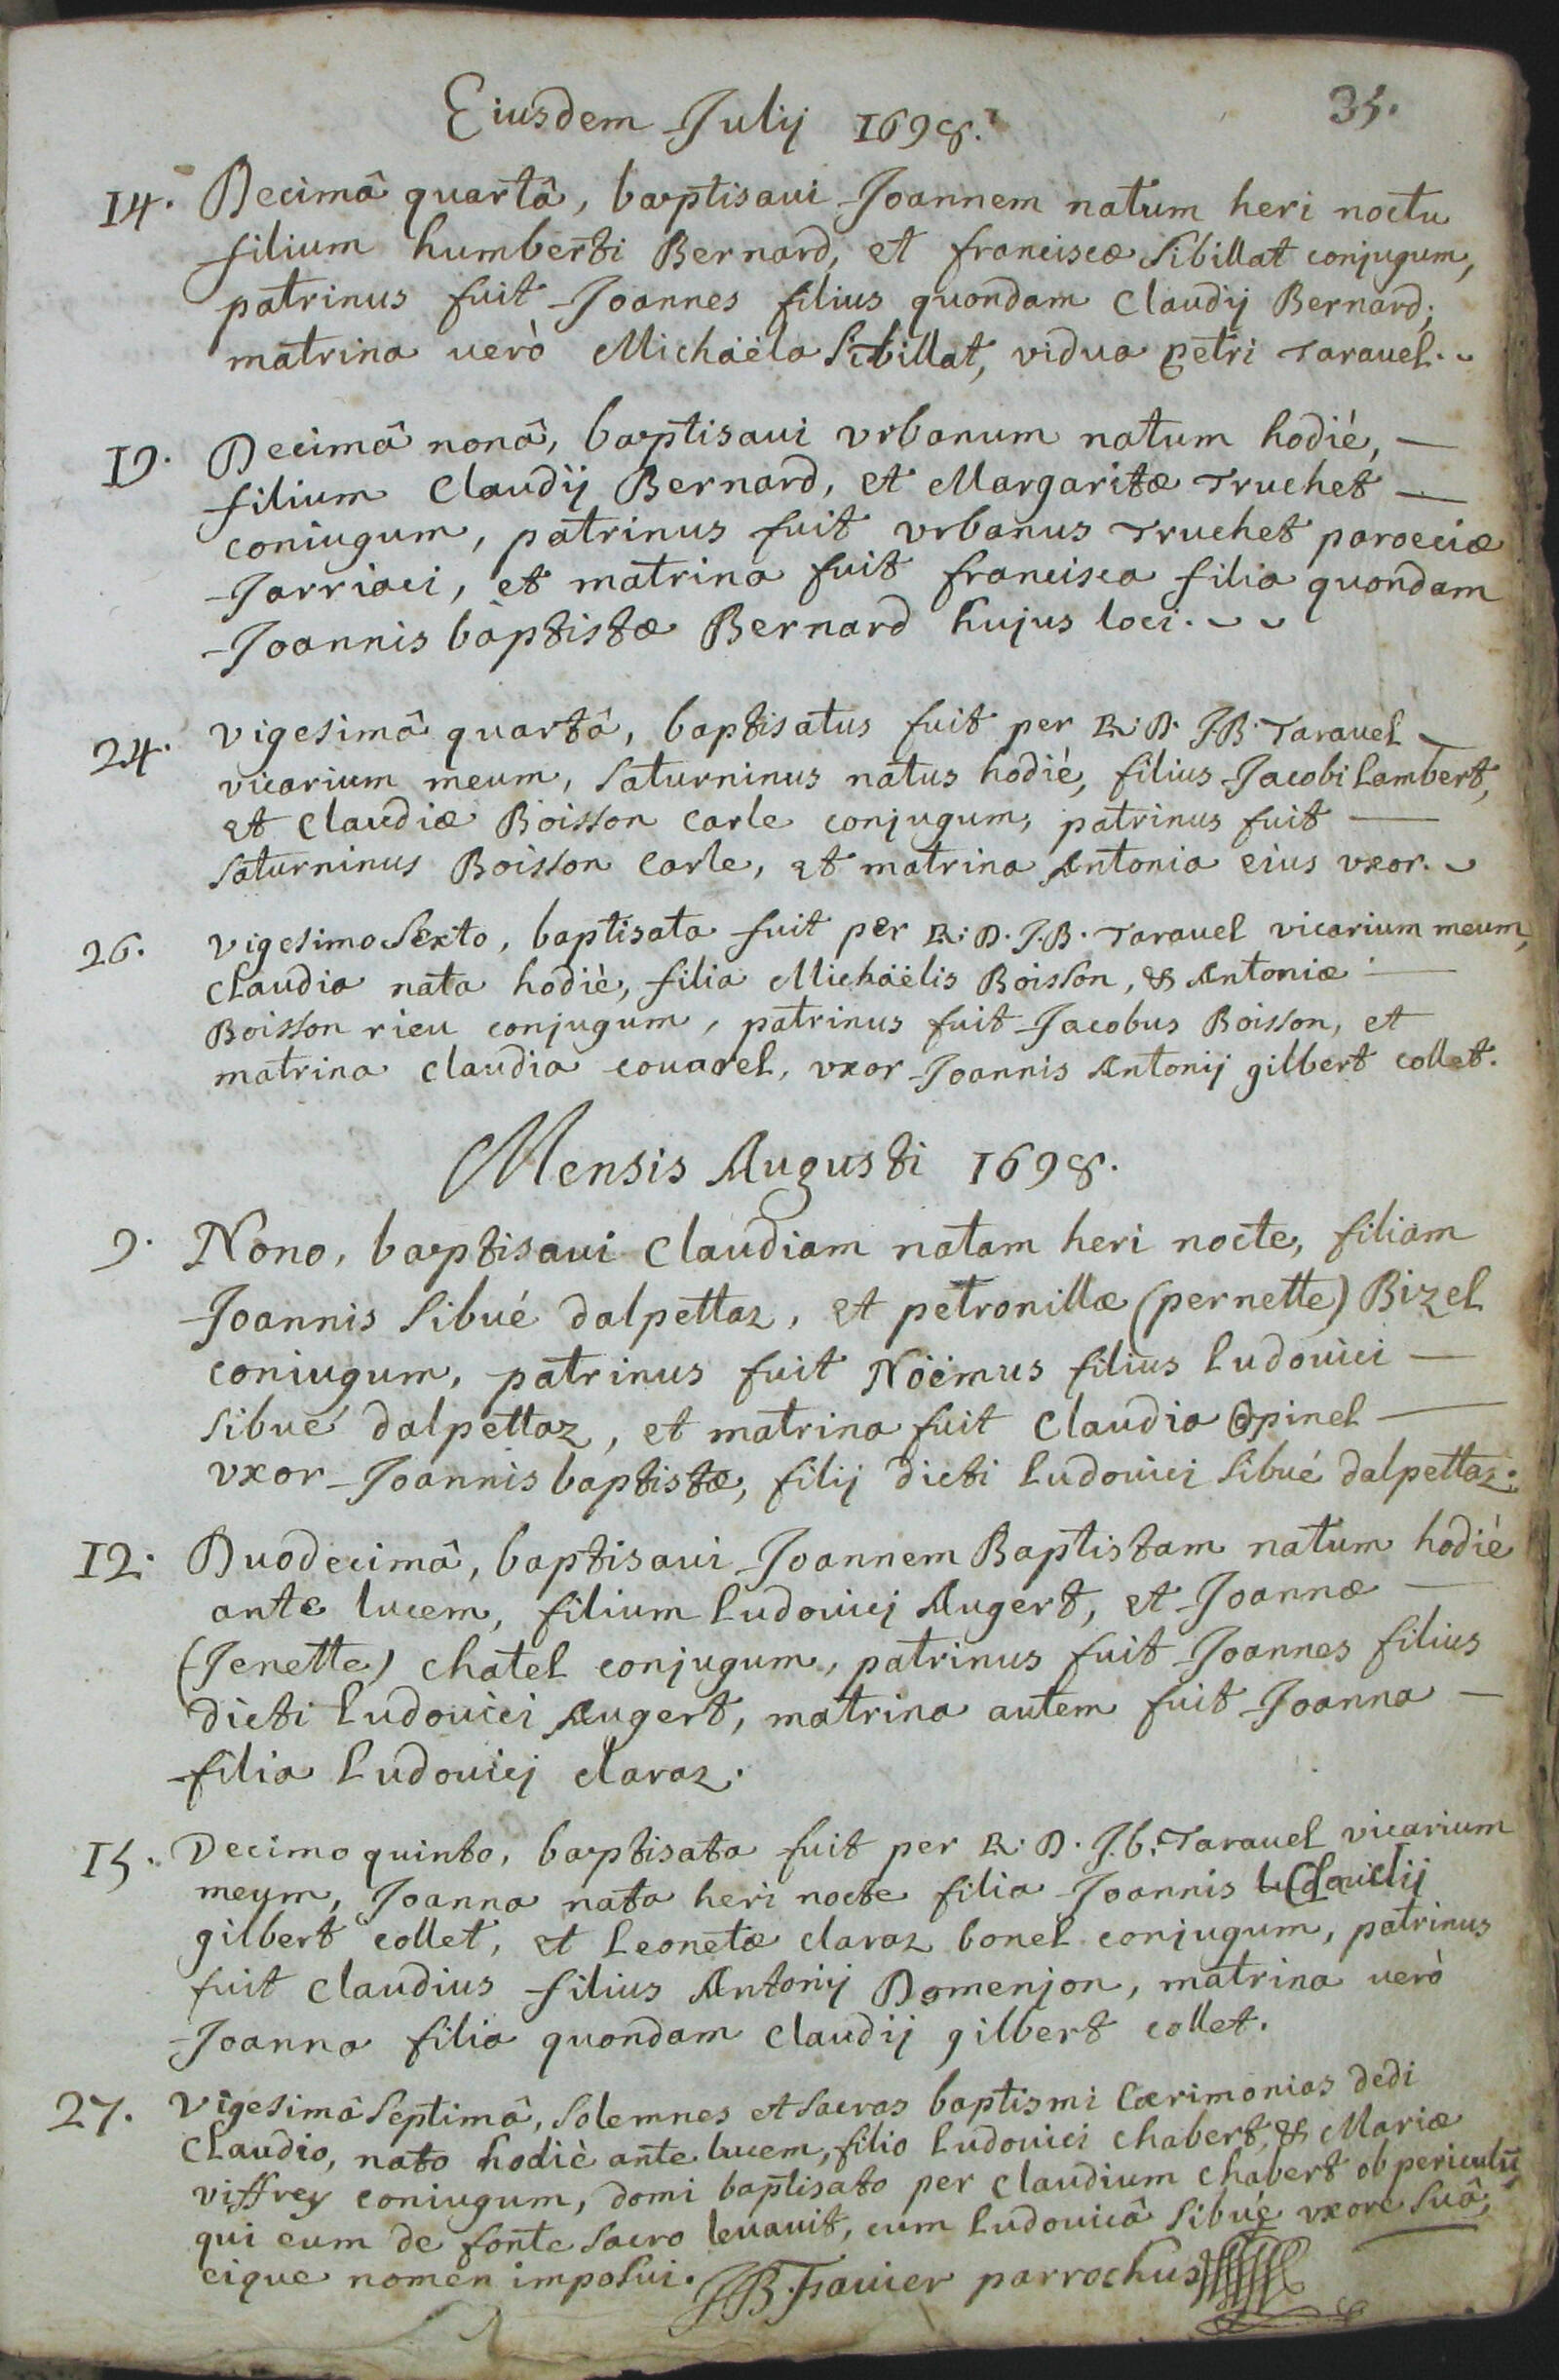 Eiusdem Julij 1698.
35.
14. Decimâ quartâ, baptisaui Joannem natum heri noctu
filium humberti Bernard, et franciscæ Sibillat conjugum,
patrinus fuit Joannes filius quondam Claudij Bernard;
matrina uerò Michaëla Sibillat, vidua petri Tarauel.
19. Decimâ nonâ, baptisaui vrbanum natum hodiè, —
filium Claudij Bernard, et Margaritæ Truchet —
coniugum, patrinus fuit vrbanus Truchet parœciæ
Jarriaci, et matrina fuit francisca filia quondam
Joannis baptistæ Bernard hujus loci.
24. vigesimâ quartâ, baptisatus fuit per R. D. J.B. Tarauel
vicarium meum, Saturninus natus hodiè, filius Jacobi Lambert,
et Claudiæ Boisson Carle conjugum, patrinus fuit —
Saturninus Boisson Carle, et matrina Antonia eius vxor.
26. vigesimo Sexto, baptisata fuit per R. D. J.B. Tarauel vicarium meum,
Claudia nata hodiè, filia Michaëlis Boisson, & Antoniæ —
Boisson rieu conjugum, patrinus fuit Jacobus Boisson, et
matrina Claudia couarel, vxor Joannis Antonij gilbert collet.
Mensis Augusti 1698.
9. Nono, baptisaui Claudiam natam heri nocte, filiam
Joannis Sibué dalpettaz, et petronillæ (pernette) Bizel
coniugum, patrinus fuit Noëmus filius Ludouici —
Sibué dalpettaz, et matrina fuit Claudia Opinel —
vxor Joannis baptistæ, filij dicti Ludouici Sibué dalpettaz.
12. Duodecimâ, baptisaui Joannem Baptistam natum hodiè
ante lucem, filium Ludouicj Augert, et Joannæ —
(Jenette) chatel conjugum, patrinus fuit Joannes filius
dicti Ludouici Augert, matrina autem fuit Joanna —
filia Ludouicj claraz.
15. Decimo quinto, baptisata fuit per R. D. J.b. Tarauel vicarium
meum, Joanna nata heri nocte filia Joannis Claudij
gilbert collet, et Leonetæ claraz bonel conjugum, patrinus
fuit Claudius filius Antonij Domenjon, matrina uerò
Joanna filia quondam Claudij gilbert collet.
27. vigesimâ Septimâ, Solemnes et Sacras baptismi Cærimonias dedi
Claudio, nato hodiè ante lucem, filio Ludouici chabert, & Mariæ
viffrey coniugum, domi baptisato per Claudium chabert ob periculū
qui eum de fonte Sacro leuauit, cum Ludouicâ Sibué vxore Suâ,
eique nomen imposui. JB. parrochus